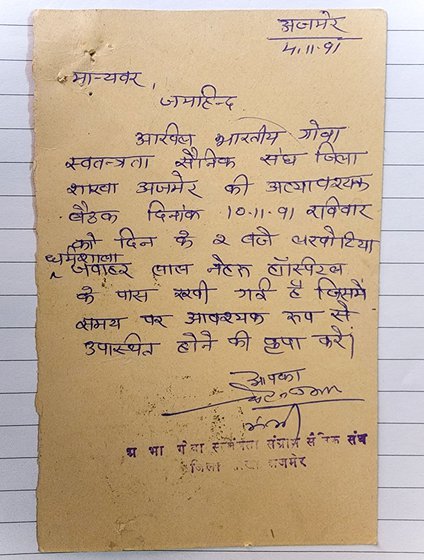 अजमेर
4.11.91
मान्यवर,
जयहिन्द
अखिल भारतीय गोवा
स्वतन्त्रता सैनिक संघ जिला
शाखा अजमेर की अत्यावश्यक
बैठक दिनांक 10.11.91 रविवार
को दिन के २ बजे
धर्मशाला
जवाहर लाल नेहरू हॉस्पिटल
के पास रखी गई है जिसमें
समय पर आवश्यक रूप से
उपस्थित होने की कृपा करें।
आपका
मंत्री
भा गोवा संग्राम सैनिक संघ
जिला अजमेर